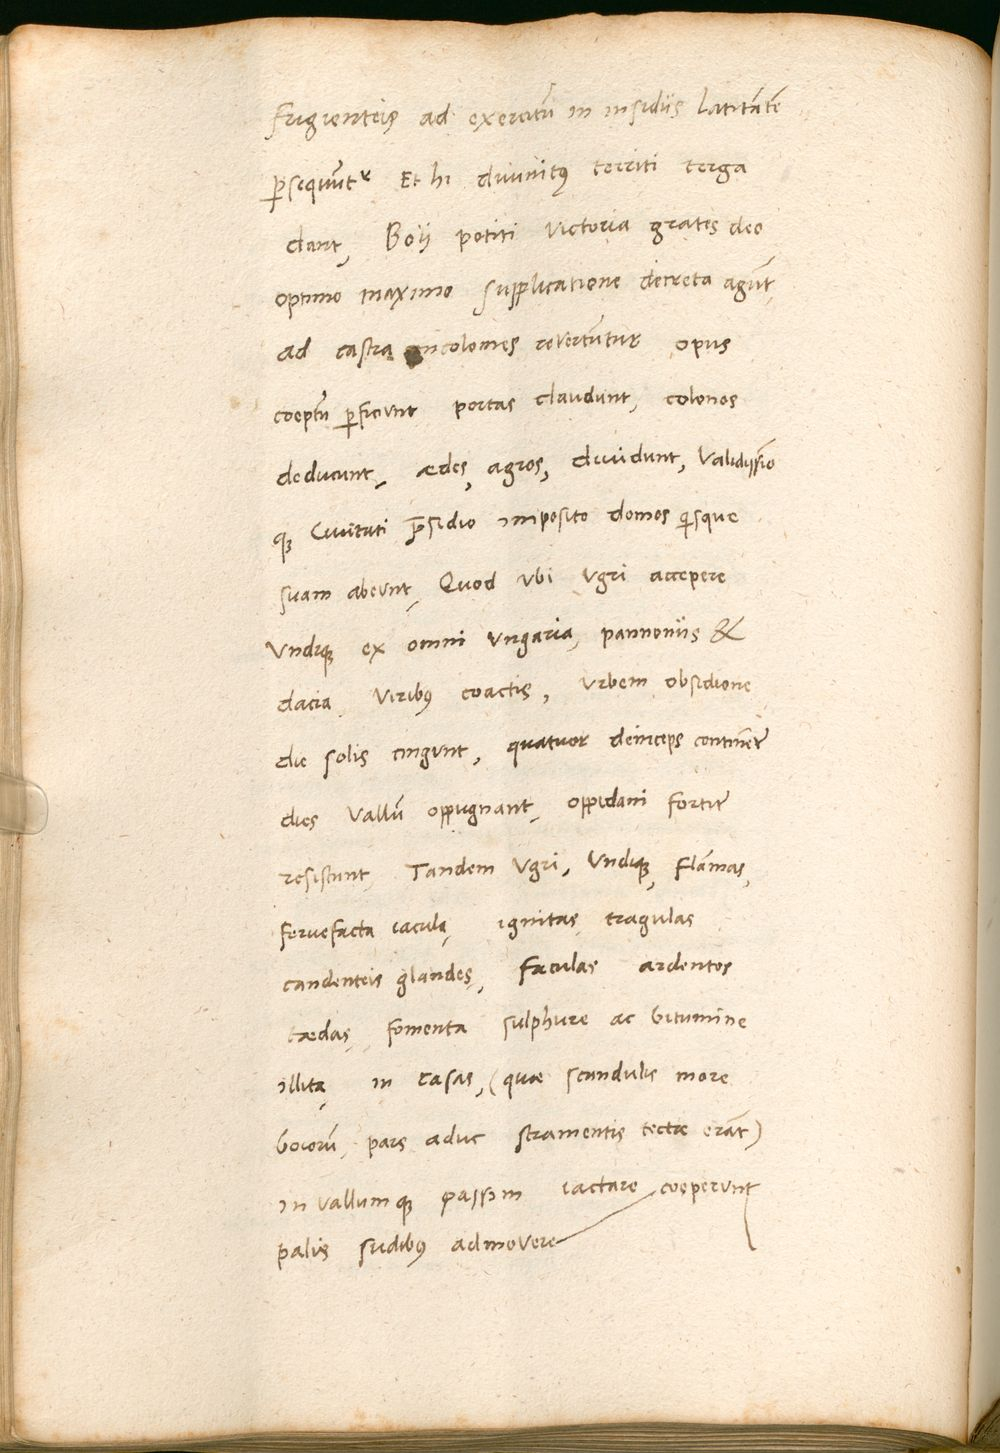 frigienteis ad exercitū in insidiis latitātē
p̱sequūtᵉ Et hi diuinitꝰ territi terga
dant, Boij potiti victoria grates deo
optimo maximo supplicatione decreta agūt,
ad castra incolomes revertūtur opus
coeptū ꝑficiunt portas claudunt, colonos
deducunt, ædes, agros, diuidunt, Validissīo
qꝫ Ciuitati p̄sidio imposito domos qisque
suam abeunt, Quod vbi vgri accepere
Vndiqꝫ ex omni vngaria, pannoniis &
dacia viribꝰ coactis, vrbem obsidione
die solis cingunt, quatuor deinceps continēter
dies vallū oppugnant, oppidani fortit̄
resistunt, Tandem vgri, vndiqꝫ, flāmas,
feruefacta iacula, ignitas tragulas
candenteis glandes, faculas ardentes
tædas, fomenta sulphure ac bitumine
illita, in casas, (quæ scandulis more
boiorū, pars aduc stramentis tectæ erāt)
in vallumqꝫ passim iactare coeperunt
palis sudibꝰ admovere